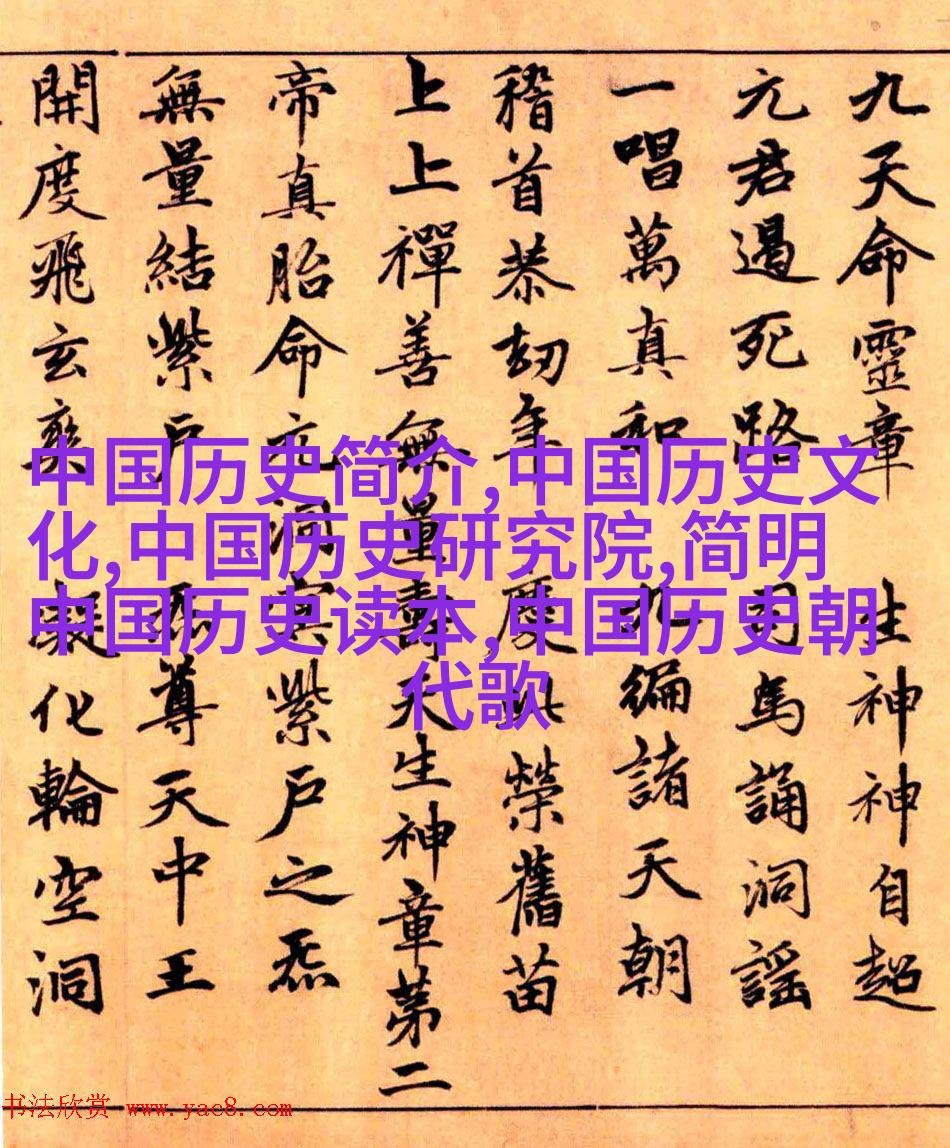 九天命靈章 生神神自超
元君遏死路 司馬誦洞謡
一唱萬真和 九編諸天朝
稽首恭刧年 慶此榮舊苗
上上禪善無量壽天生神章第二
帝真胎命元洞冥紫戶之炁
無量結紫戶 炁尊天中王
開度飛玄爽 凝化輪空洞
中国历史简介,中国历史文
化,中国历史研究院,简明
中国历史读本,中国历史朝
代歌
书法欣赏 www.yac8.com